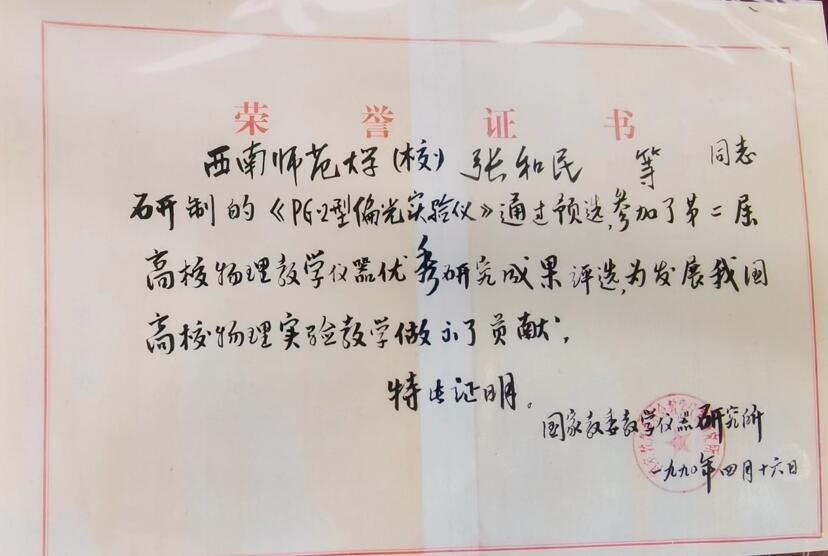 荣誉证书
西南师范大学(校)张和民 等 同志
研制的《PG-2型偏光实验仪》通过预选,参加了第二届
高校物理教学仪器优秀研究成果评选,为发展我国
高校物理实验教学做出了贡献,
特此证明。
国家教委教学仪器研究所
一九九〇年四月十六日